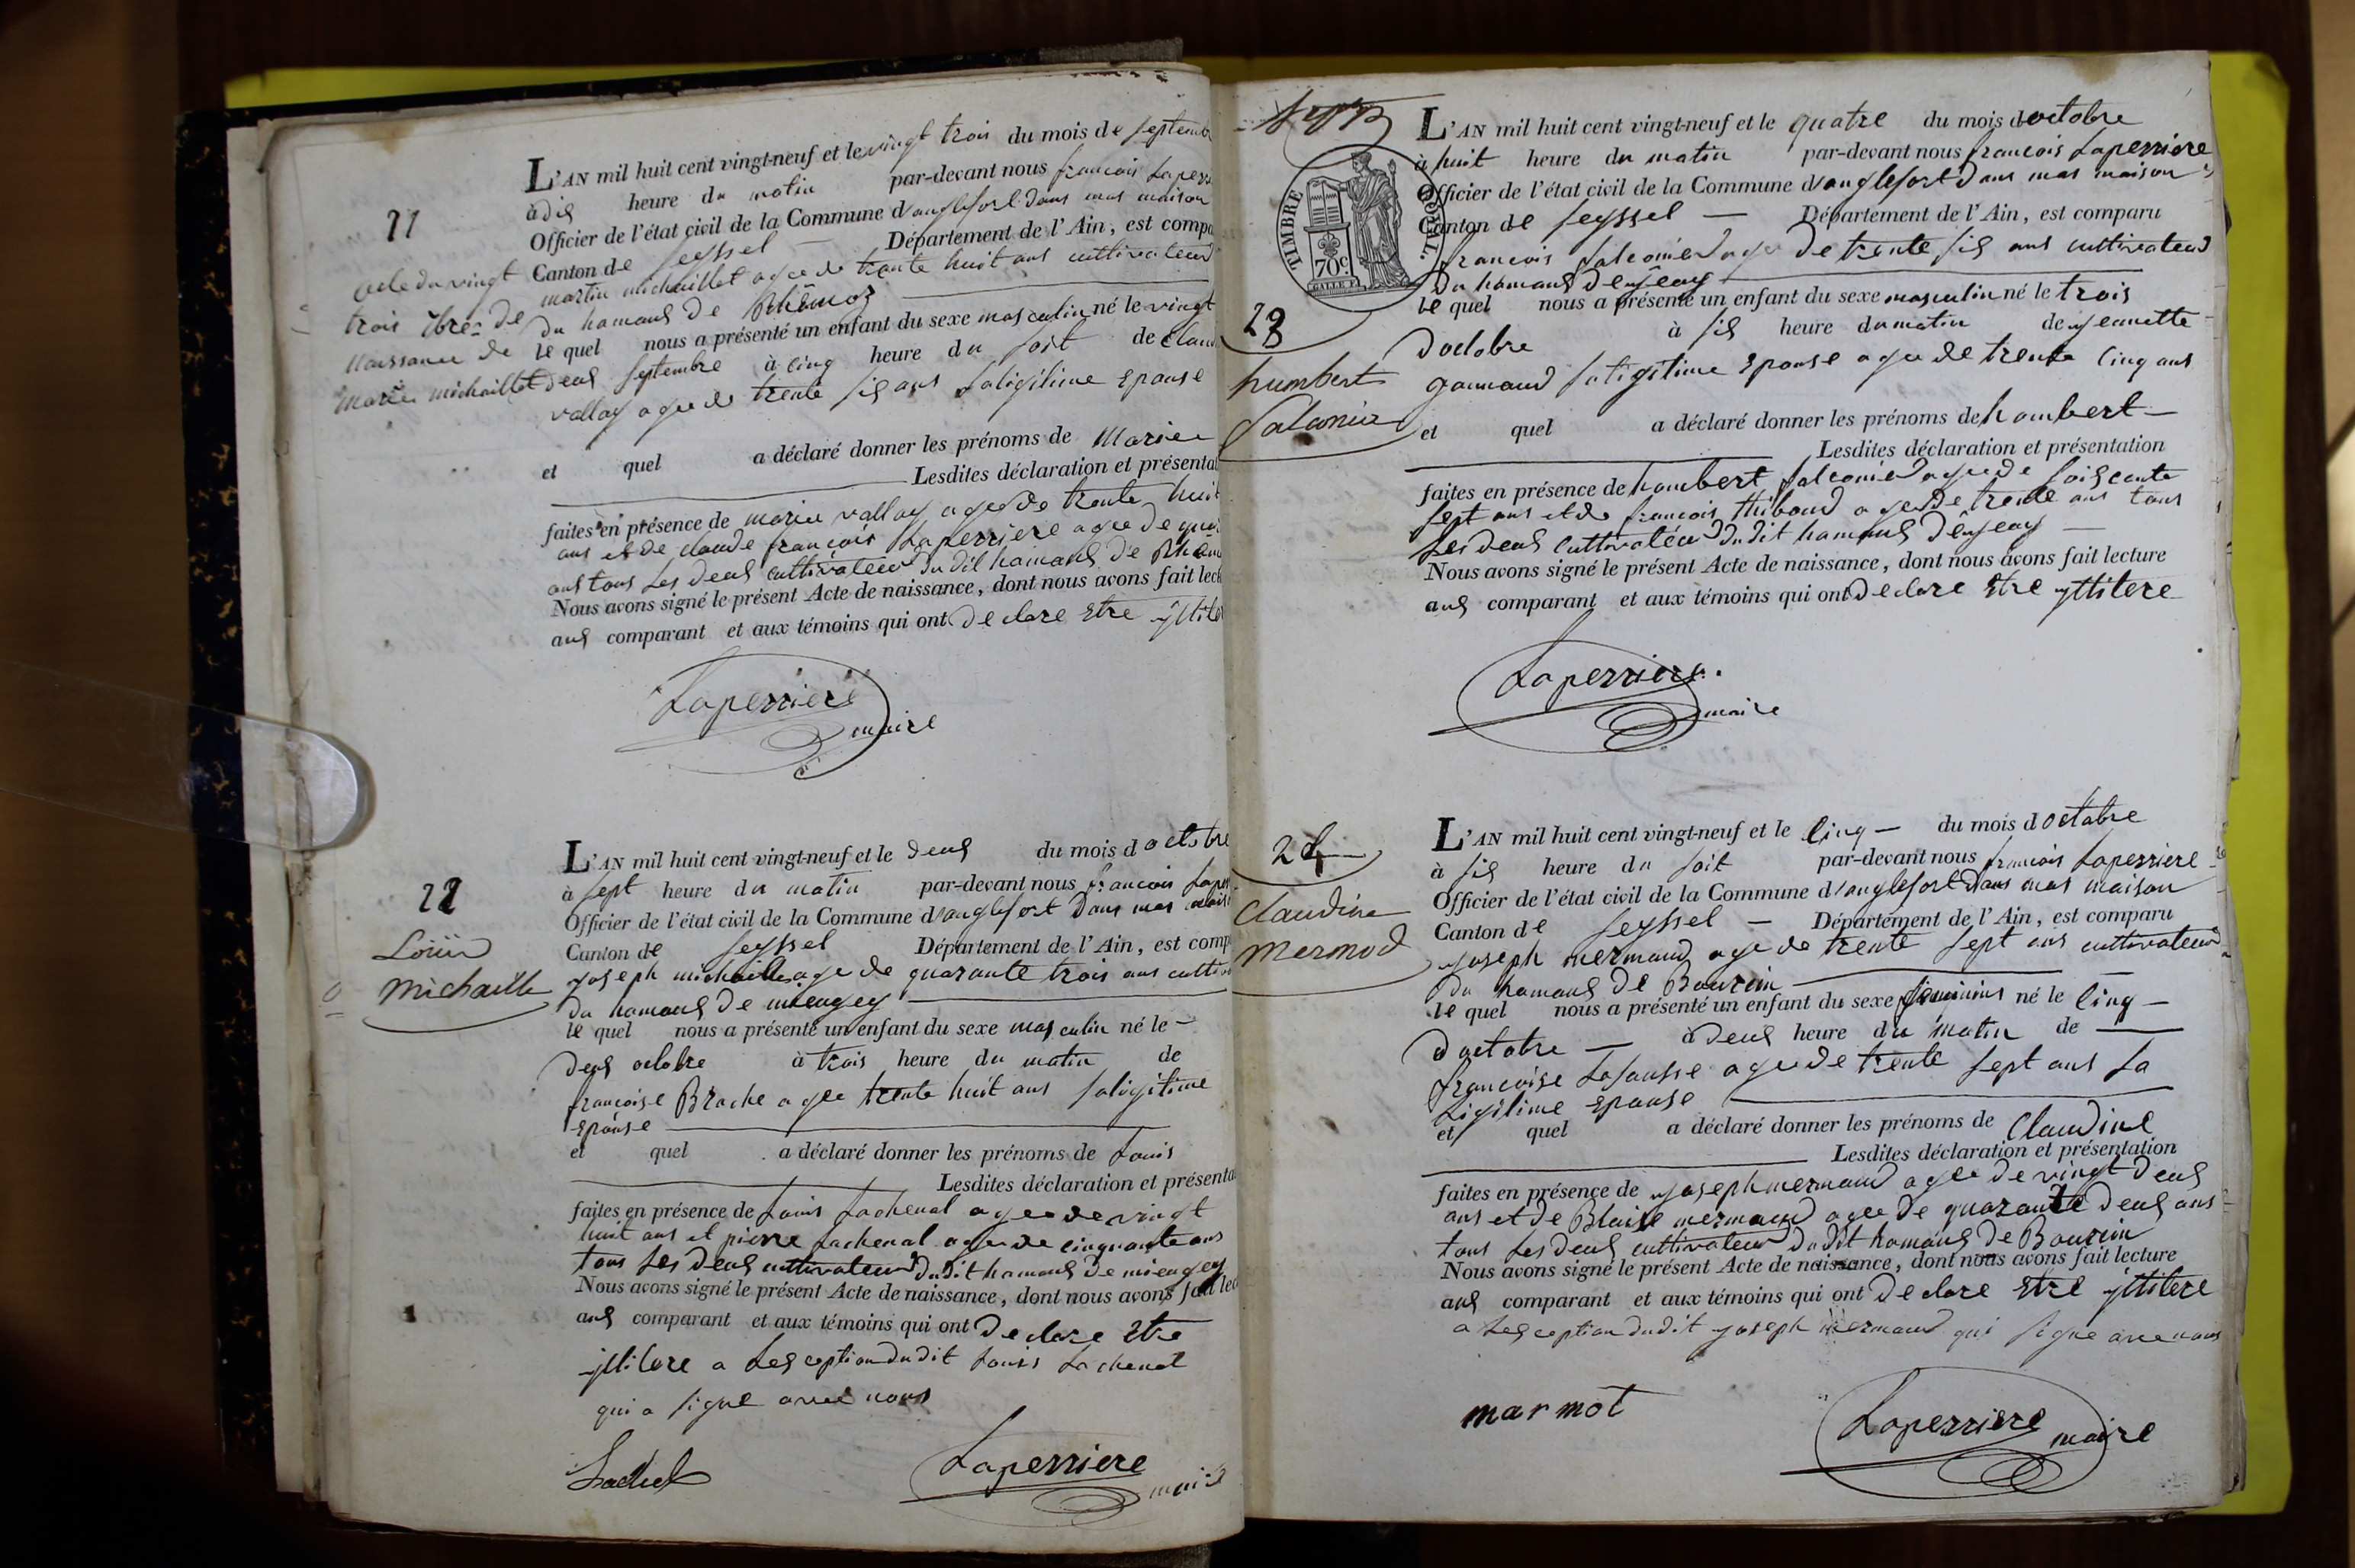 21
acte du vingt
trois 7bre de
naissance de
marie michaillet
L'AN mil huit cent vingt-neuf et le vingt trois du mois de septemb
à dix heure du matin par-devant nous francois Laperr
Officier de l'état civil de la Commune d'anglefort dans mas maison
Canton de seyssel — Département de l'Ain, est compa
martin michaillet agee de trante huit ans cultivateur
du hamaux de Rhemoz
le quel nous a présenté un enfant du sexe masculin né le vingt
deux septembre à cinq heure du soit de Clau
vallay agee de trente six ans saligitime epouse
et quel a déclaré donner les prénoms de Marie
Lesdites déclaration et présentat
faites en présence de marie vallay agee de trante huit
ans et de claude francois Laperriere agee de qua
ans tous Les deux cultivateur dudit hamaux de Rhem
Nous avons signé le présent Acte de naissance, dont nous avons fait lect
aux comparant et aux témoins qui ont declare Etre yllite
Laperriere
maire
22
Loüis
michaille
L'AN mil huit cent vingt-neuf et le deux du mois d octobre
à sept heure du matin par-devant nous francois Laper
Officier de l'état civil de la Commune d'anglefort dans mas maiso
Canton de seyssel Département de l'Ain, est comp
joseph michaille age de quarante trois ans cultiv
du hamaux de miengey
le quel nous a présenté un enfant du sexe masculin né le —
deux octobre à trois heure du matin de
francoise Brache agee trente huit ans saligitime
epouse
et quel a déclaré donner les prénoms de Louis
Lesdites déclaration et présenta
faites en présence de Louis Lachenal agee de vingt
huit ans et pierre Lachenal agee de cinquante ans
tous Les deux cultivateur dudit hamaux de miengey
Nous avons signé le présent Acte de naissance, dont nous avons fait lec
aux comparant et aux témoins qui ont declare Etre
yllitere a Lesception dudit Louis Lachenal
qui a signe avec nous
Laperriere
maire
TIMBRE ROYAL
70c
L'AN mil huit cent vingt-neuf et le quatre du mois d octobre
à huit heure du matin par-devant nous francois Laperriere
Officier de l'état civil de la Commune d'anglefort dans mas maison
Canton de seyssel — Département de l'Ain, est comparu
francois falconier age de trente six ans cultivateur
du hamaux denjeay
le quel nous a présenté un enfant du sexe masculin né le trois
d octobre à six heure du matin de jeanette
gannaud saligitime Epouse agee de trente cinq ans
23
humbert
falconier
et quel a déclaré donner les prénoms de humbert
Lesdites déclaration et présentation
faites en présence de humbert falconier agee de soiscante
sept ans et de francois thiboud agee de trente ans tous
Les deux cultivateur dudit hamaux denjeay
Nous avons signé le présent Acte de naissance, dont nous avons fait lecture
aux comparant et aux témoins qui ont declare Etre yllitere
Laperriere
maire
24
Claudine
mermod
L'AN mil huit cent vingt-neuf et le cinq — du mois d octobre
à six heure du soit par-devant nous francois Laperriere
Officier de l'état civil de la Commune d'anglefort dans mas maison
Canton de seyssel — Département de l'Ain, est comparu
joseph mermaud age de trente sept ans cultivateur
du hamaux de Bourcin
le quel nous a présenté un enfant du sexe feminins né le cinq —
d octobre — à deux heure du matin de
francoise Lafausse agee de trente sept ans La
Ligitime epouse
et quel a déclaré donner les prénoms de Claudine
Lesdites déclaration et présentation
faites en présence de joseph mermaud agee de vingt deux
ans et de Blaise mermaud agee de quarante deux ans
tous Les deux cultivateur dudit hamaux de Bourcin
Nous avons signé le présent Acte de naissance, dont nous avons fait lecture
aux comparant et aux témoins qui ont declare Etre yllitere
a Lesception dudit joseph mermaud qui signe avec nous
marmot
Laperriere
maire